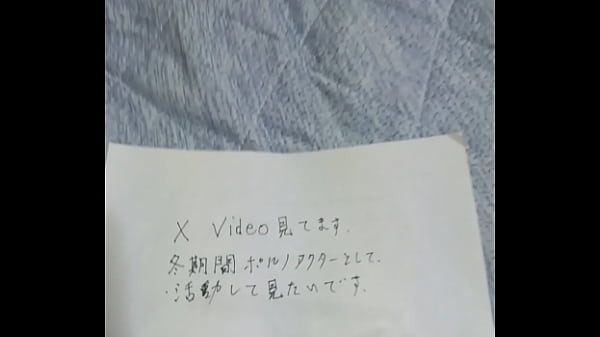 X Video見てます。
冬期間ポルノアクターとして、
活動して見たいです。